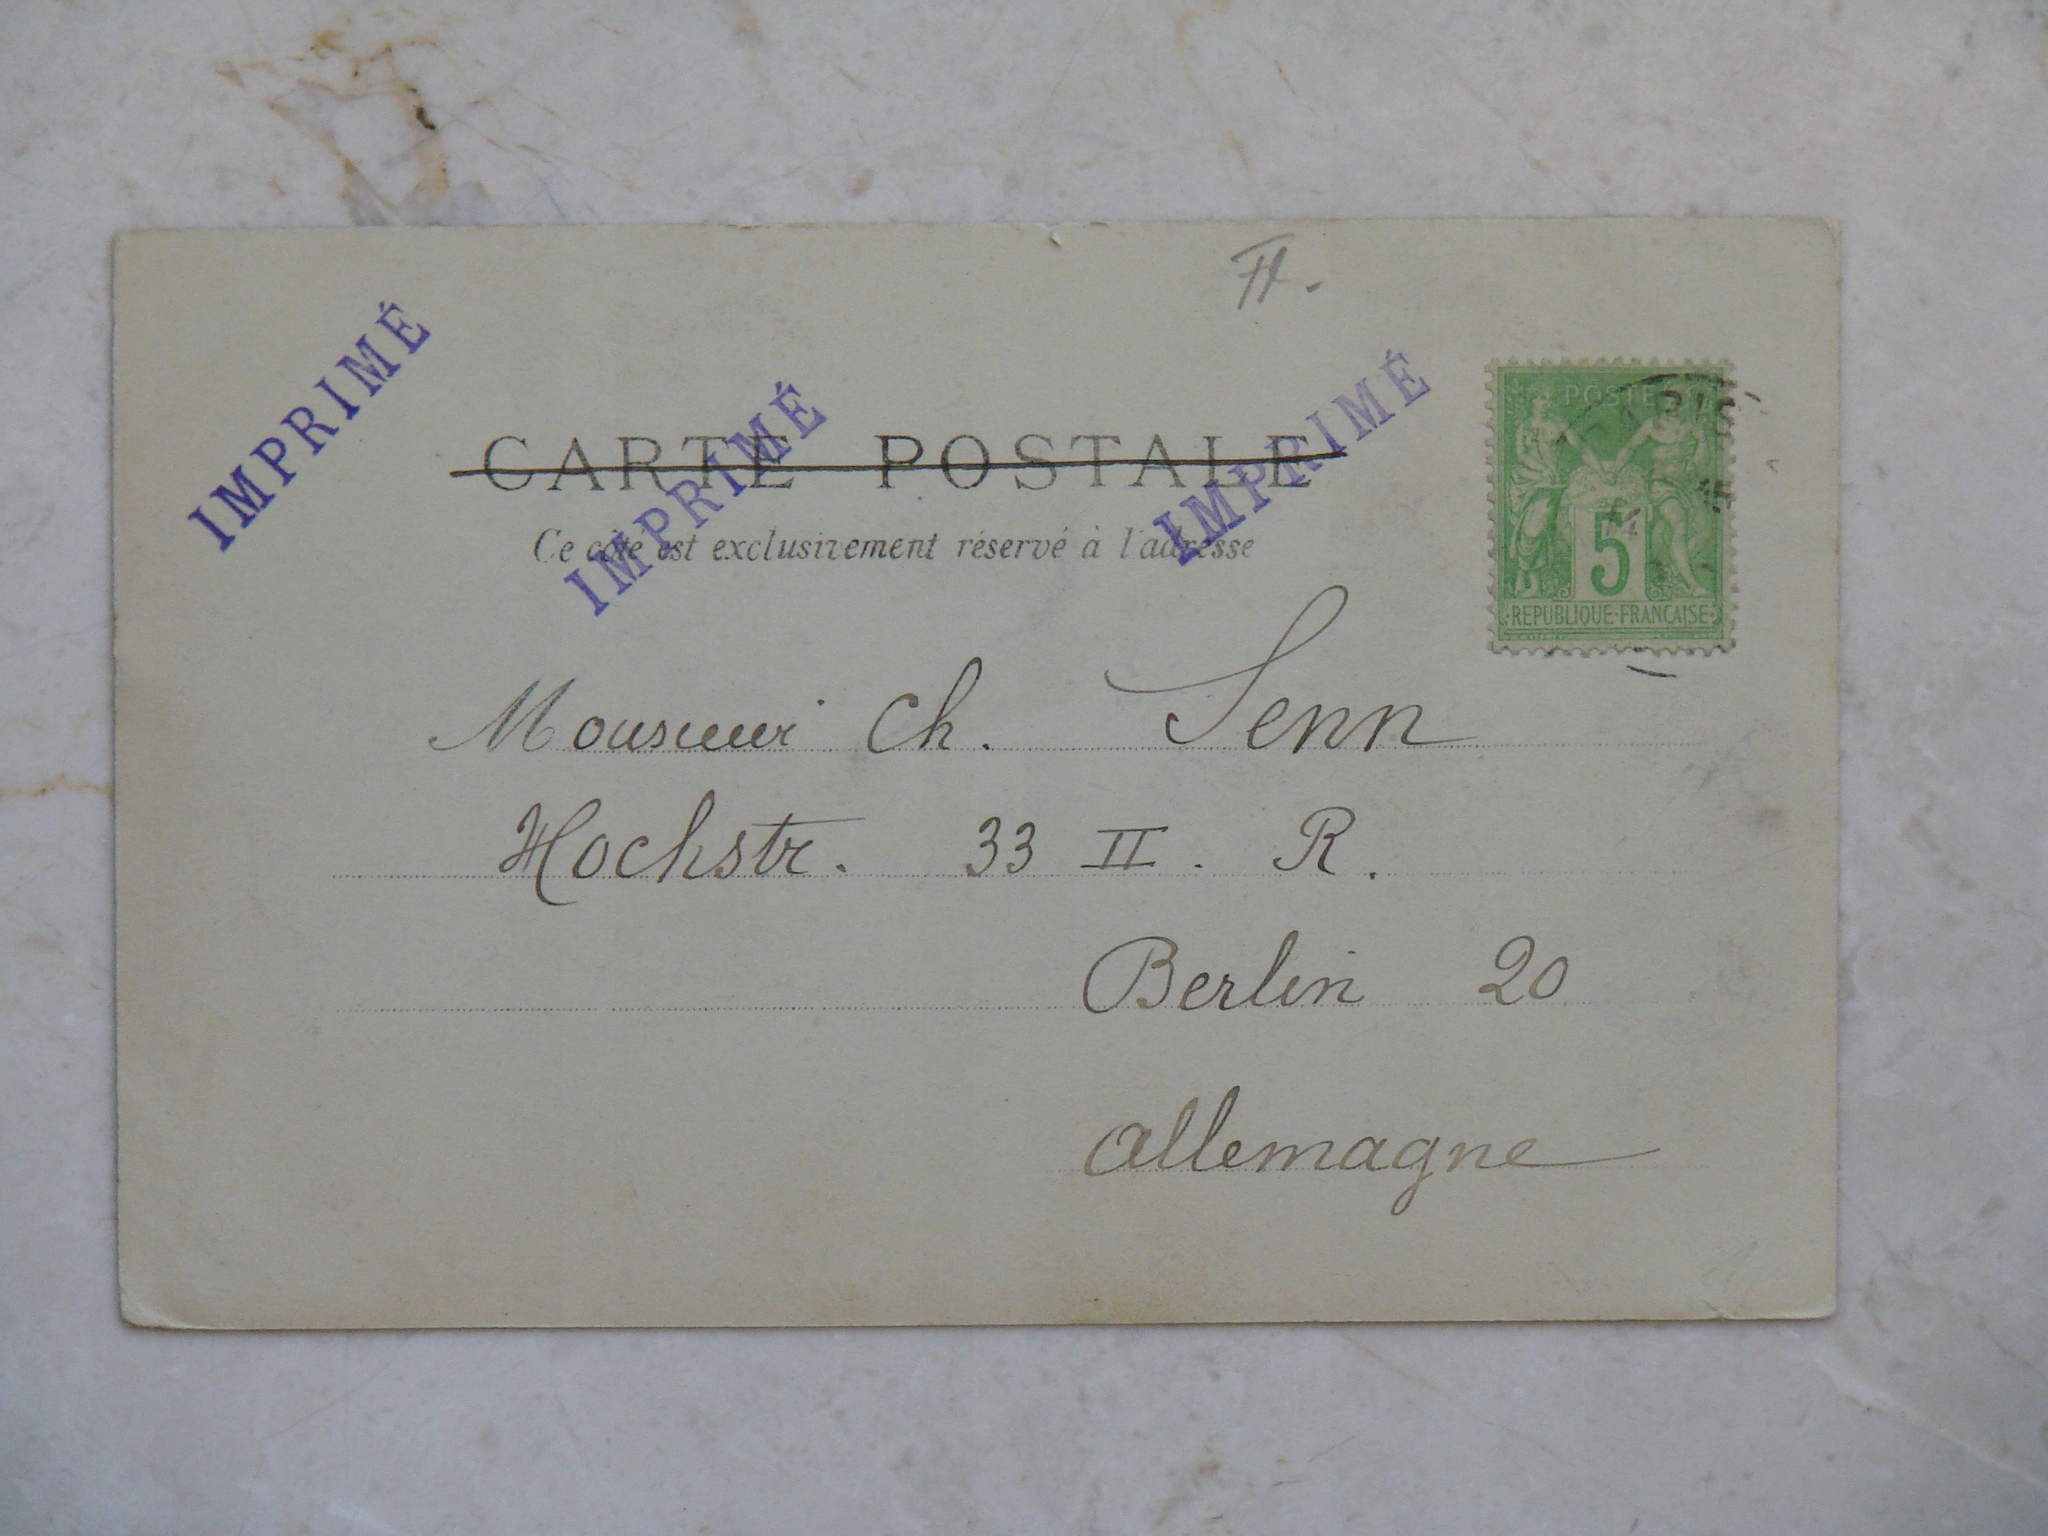 IMPRIMÉ IMPRIMÉ IMPRIMÉ
CARTE POSTALE
Ce côté est exclusivement réservé à l'adresse
POSTES
PARIS
5
REPUBLIQUE·FRANÇAISE
Monsieur Ch. Senn
Hochstr. 33 II. R.
Berlin 20
Allemagne